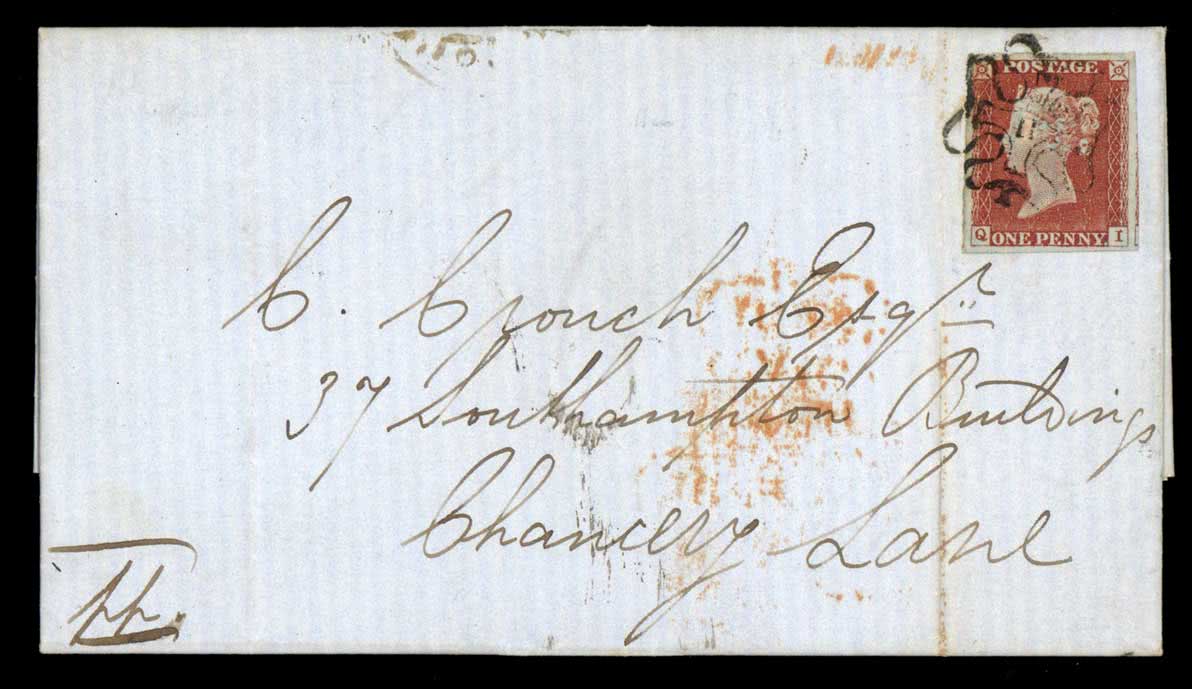 POSTAGE
11
Q ONE PENNY I
C. Crouch Esqr
37 Southampton Buildings
Chancery Lane
pp.